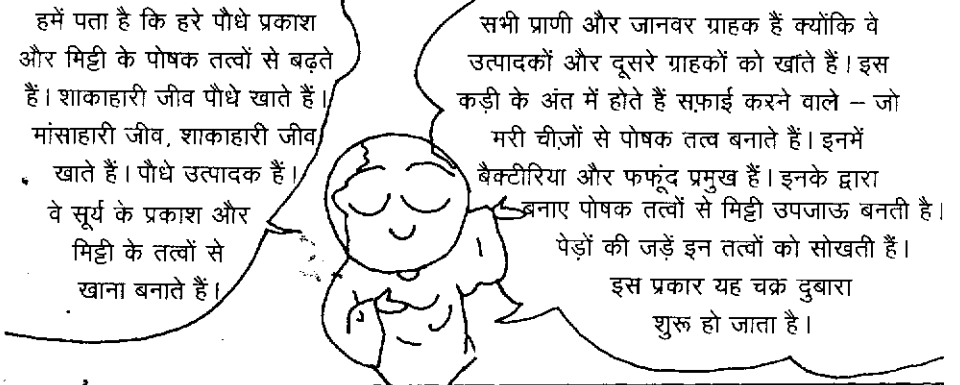 हमें पता है कि हरे पौधे प्रकाश
और मिट्टी के पोषक तत्वों से बढ़ते
हैं। शाकाहारी जीव पौधे खाते हैं।
मांसाहारी जीव, शाकाहारी जीव
खाते हैं। पौधे उत्पादक हैं।
वे सूर्य के प्रकाश और
मिट्टी के तत्वों से
खाना बनाते हैं।
सभी प्राणी और जानवर ग्राहक हैं क्योंकि वे
उत्पादकों और दूसरे ग्राहकों को खाते हैं। इस
कड़ी के अंत में होते हैं सफ़ाई करने वाले – जो
मरी चीज़ों से पोषक तत्व बनाते हैं। इनमें
बैक्टीरिया और फफूंद प्रमुख हैं। इनके द्वारा
बनाए पोषक तत्वों से मिट्टी उपजाऊ बनती है।
पेड़ों की जड़ें इन तत्वों को सोखती हैं।
इस प्रकार यह चक्र दुबारा
शुरू हो जाता है।